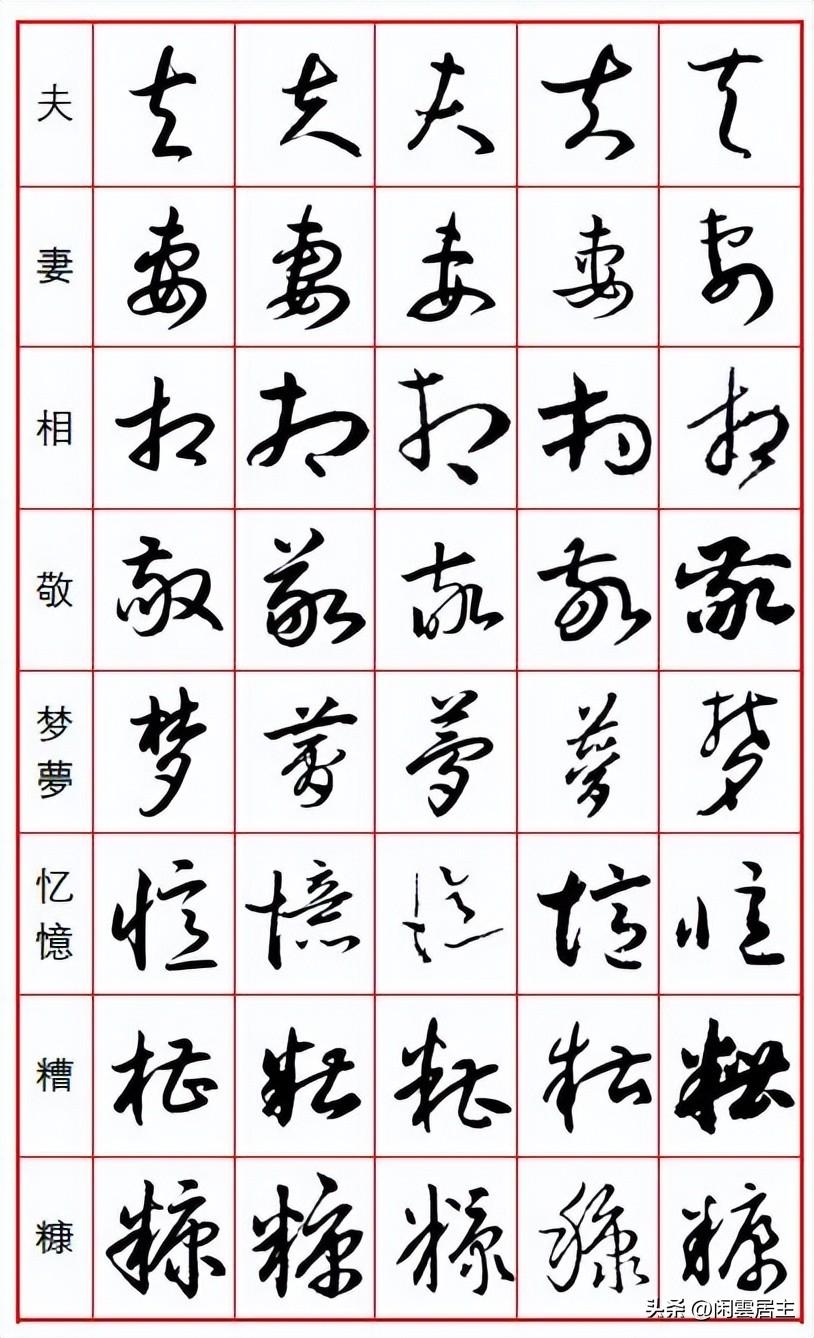 夫 夫 夫 夫 夫 夫
妻 妻 妻 妻 妻 妻
相 相 相 相 相 相
敬 敬 敬 敬 敬 敬
梦夢 梦 夢 夢 夢 梦
忆憶 憶 憶 憶 憶 憶
糟 糟 糟 糟 糟 糟
糠 糠 糠 糠 糠 糠
头条 @闲雲居主